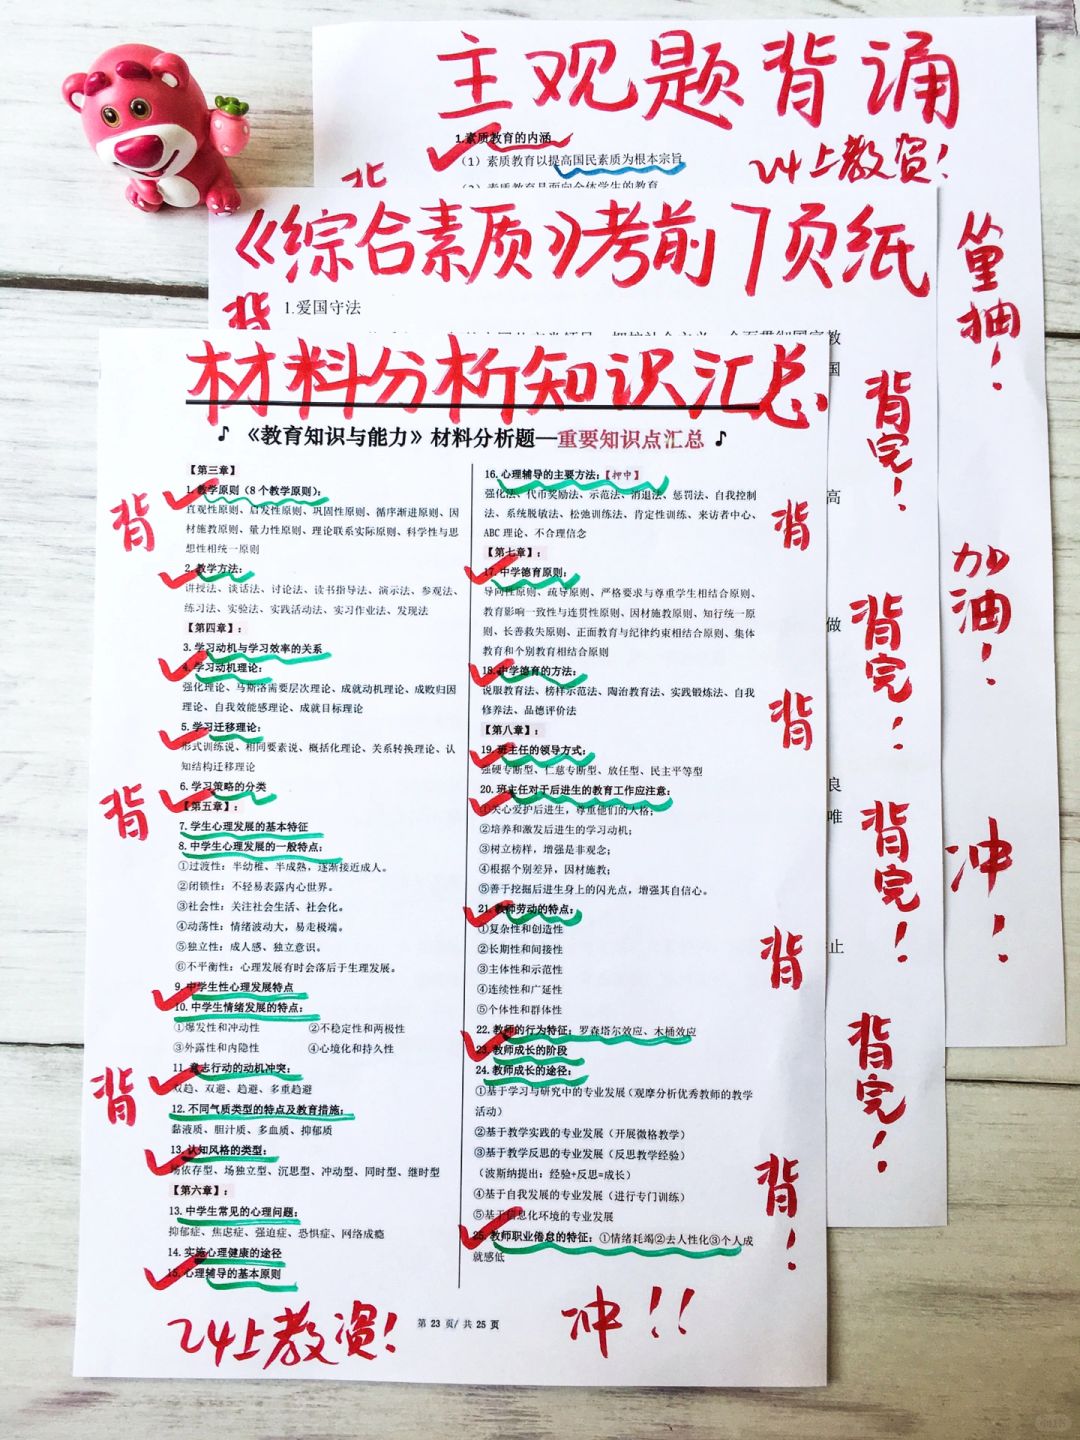 主观题背诵
1.素质教育的内涵
（1）素质教育以提高国民素质为根本宗旨
（2）素质教育是面向全体学生的教育
24上教资！
背
《综合素质》考前7页纸
1.爱国守法
背
国
背完！
高
背完！
做
良
唯
背完！
止
背完！
抽！
加油！
冲！
材料分析知识汇总
♪《教育知识与能力》材料分析题—重要知识点汇总♪
【第三章】
1.教学原则（8个教学原则）：
直观性原则、启发性原则、巩固性原则、循序渐进原则、因
材施教原则、量力性原则、理论联系实际原则、科学性与思
想性相统一原则
2.教学方法：
讲授法、谈话法、讨论法、读书指导法、演示法、参观法、
练习法、实验法、实践活动法、实习作业法、发现法
【第四章】：
3.学习动机与学习效率的关系
4.学习动机理论：
强化理论、马斯洛需要层次理论、成就动机理论、成败归因
理论、自我效能感理论、成就目标理论
5.学习迁移理论：
形式训练说、相同要素说、概括化理论、关系转换理论、认
知结构迁移理论
6.学习策略的分类
【第五章】：
7.学生心理发展的基本特征
8.中学生心理发展的一般特点：
①过渡性：半幼稚、半成熟，逐渐接近成人。
②闭锁性：不轻易表露内心世界。
③社会性：关注社会生活、社会化。
④动荡性：情绪波动大，易走极端。
⑤独立性：成人感、独立意识。
⑥不平衡性：心理发展有时会落后于生理发展。
9.中学生性心理发展特点
10.中学生情绪发展的特点：
①爆发性和冲动性 ②不稳定性和两极性
③外露性和内隐性 ④心境化和持久性
11.意志行动的动机冲突：
双趋、双避、趋避、多重趋避
12.不同气质类型的特点及教育措施：
黏液质、胆汁质、多血质、抑郁质
13.认知风格的类型：
场依存型、场独立型、沉思型、冲动型、同时型、继时型
【第六章】：
13.中学生常见的心理问题：
抑郁症、焦虑症、强迫症、恐惧症、网络成瘾
14.实施心理健康的途径
15.心理辅导的基本原则
16.心理辅导的主要方法：【押中】
强化法、代币奖励法、示范法、消退法、惩罚法、自我控制
法、系统脱敏法、松弛训练法、肯定性训练、来访者中心、
ABC理论、不合理信念
【第七章】：
17.中学德育原则：
导向性原则、疏导原则、严格要求与尊重学生相结合原则、
教育影响一致性与连贯性原则、因材施教原则、知行统一原
则、长善救失原则、正面教育与纪律约束相结合原则、集体
教育和个别教育相结合原则
18.中学德育的方法：
说服教育法、榜样示范法、陶冶教育法、实践锻炼法、自我
修养法、品德评价法
【第八章】：
19.班主任的领导方式：
强硬专断型、仁慈专断型、放任型、民主平等型
20.班主任对于后进生的教育工作应注意：
①关心爱护后进生，尊重他们的人格；
②培养和激发后进生的学习动机；
③树立榜样，增强是非观念；
④根据个别差异，因材施教；
⑤善于挖掘后进生身上的闪光点，增强其自信心。
21.教师劳动的特点：
①复杂性和创造性
②长期性和间接性
③主体性和示范性
④连续性和广延性
⑤个体性和群体性
22.教师的行为特征：罗森塔尔效应、木桶效应
23.教师成长的阶段
24.教师成长的途径：
①基于学习与研究中的专业发展（观摩分析优秀教师的教学
活动）
②基于教学实践的专业发展（开展微格教学）
③基于教学反思的专业发展（反思教学经验）
（波斯纳提出：经验+反思=成长）
④基于自我发展的专业发展（进行专门训练）
⑤基于信息化环境的专业发展
25.教师职业倦怠的特征：①情绪耗竭②去人性化③个人成
就感低
背
背
背
背
背
背
背！
24上教资！
第 23 页/ 共 25 页
冲！！